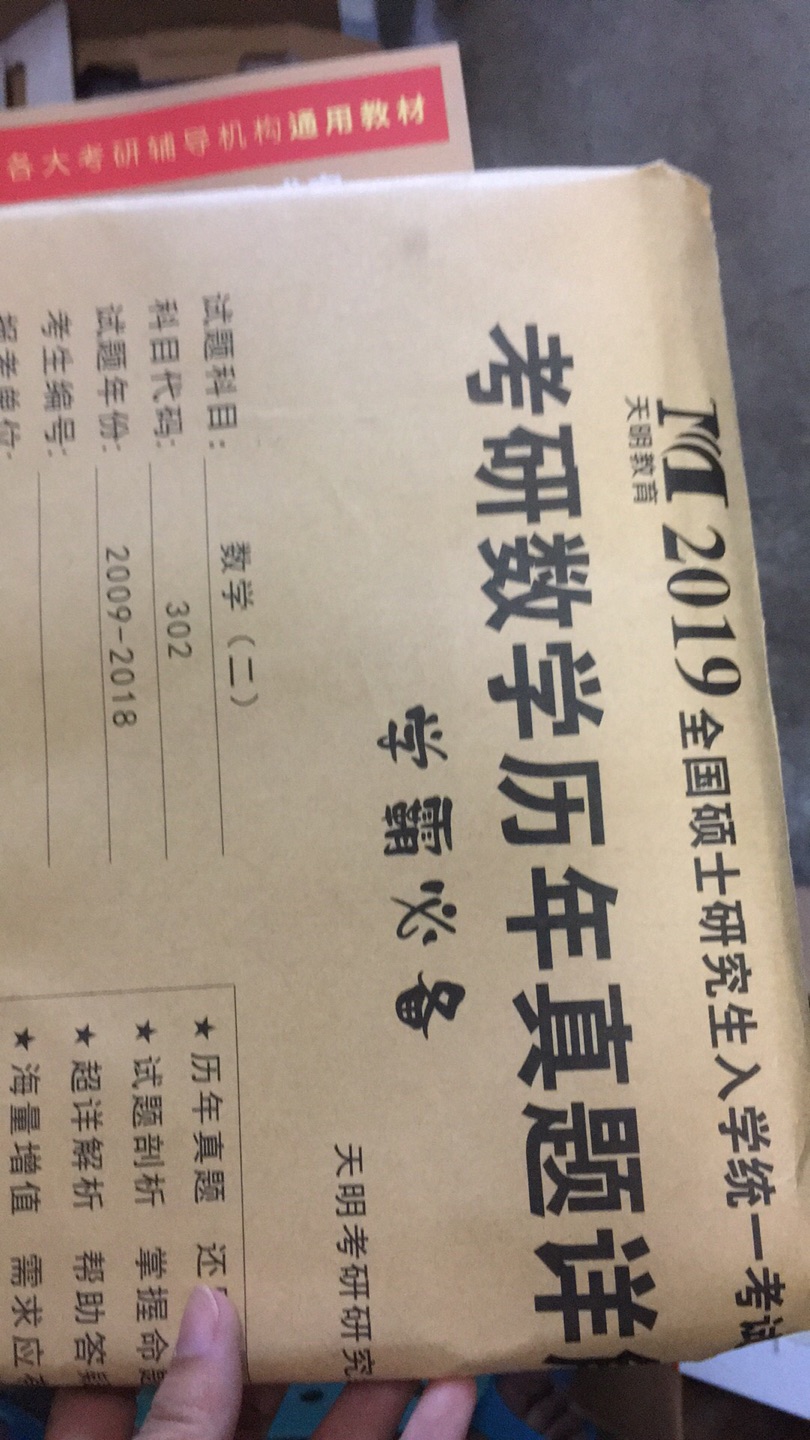 各大考研辅导机构通用教材
天明教育
2019全国硕士研究生入学统一考试
考研数学历年真题详
学霸必备
天明考研研究
试题科目: 数学(二)
科目代码: 302
试题年份: 2009-2018
考生编号:
报考单位:
★历年真题 还
★试题剖析 掌握命题
★超详解析 帮助答疑
★海量增值 需求应